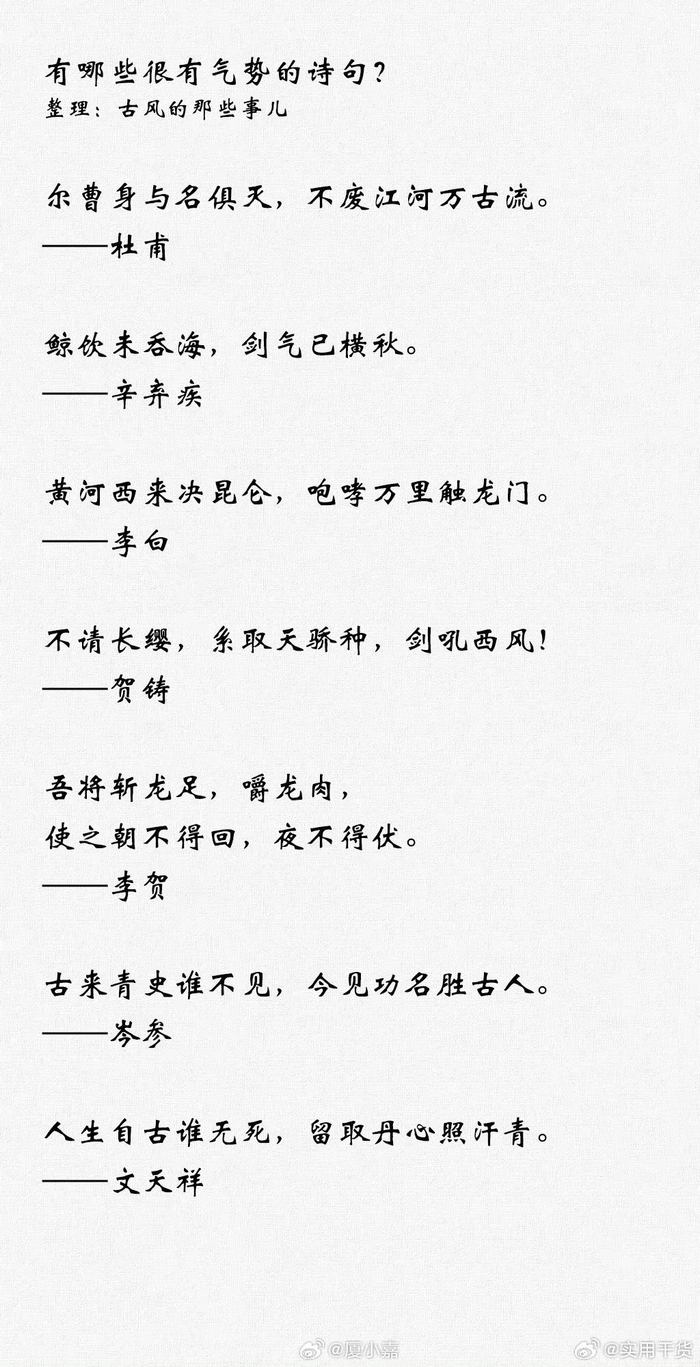 有哪些很有气势的诗句?
整理:古风的那些事儿
尔曹身与名俱灭,不废江河万古流。
——杜甫
鲸饮未吞海,剑气已横秋。
——辛弃疾
黄河西来决昆仑,咆哮万里触龙门。
——李白
不请长缨,系取天骄种,剑吼西风!
——贺铸
吾将斩龙足,嚼龙肉,
使之朝不得回,夜不得伏。
——李贺
古来青史谁不见,今见功名胜古人。
——岑参
人生自古谁无死,留取丹心照汗青。
——文天祥
@厦小嘉
@实用干货